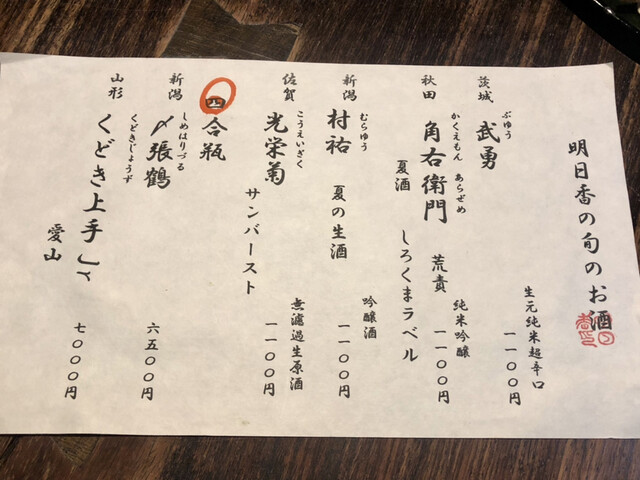 明日香の旬のお酒
茨城 武勇 生元純米超辛口 一一〇〇円
ぶゆう
秋田 角右衛門 荒責 純米吟醸 一一〇〇円
かくえもん あらぜめ
夏酒 しろくまラベル
新潟 村祐 夏の生酒 吟醸酒 一一〇〇円
むらゆう
佐賀 光栄菊 サンバースト 無濾過生原酒 一一〇〇円
こうえいぎく
四合瓶
新潟 〆張鶴 六五〇〇円
しめはりづる
山形 くどき上手 愛山 七〇〇〇円
くどきじょうず